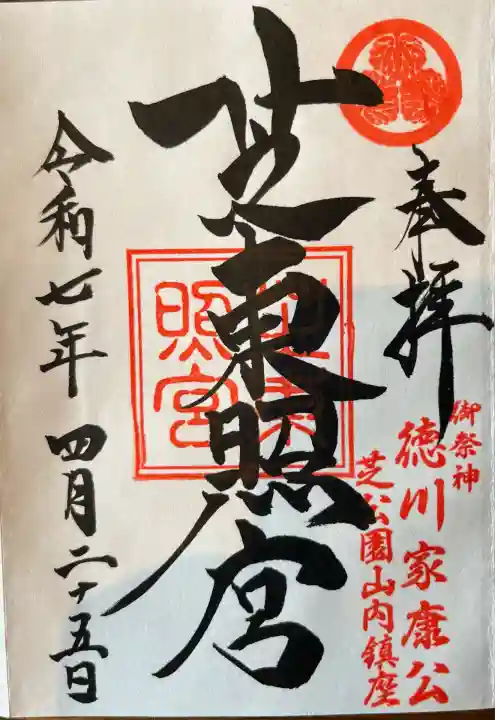 奉拝
御祭神
徳川家康公
芝公園山内鎮座
芝東照宮
芝東
照宮
令和七年 四月二十五日